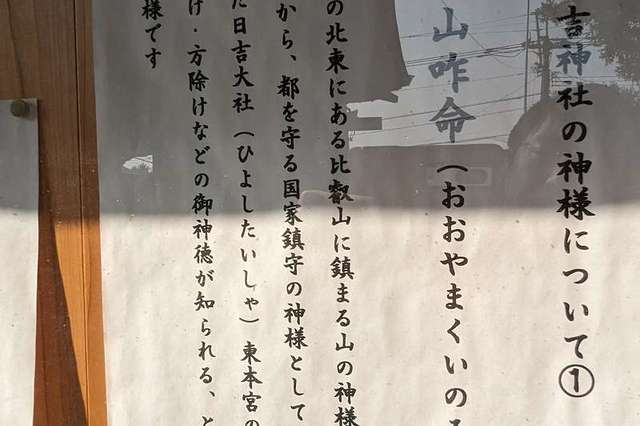 吉神社の神様について①
山咋命（おおやまくいの
の北東にある比叡山に鎮まる山の神様
から、都を守る国家鎮守の神様として
た日吉大社（ひよしたいしゃ）東本宮の
け・方除けなどの御神徳が知られる、と
様です